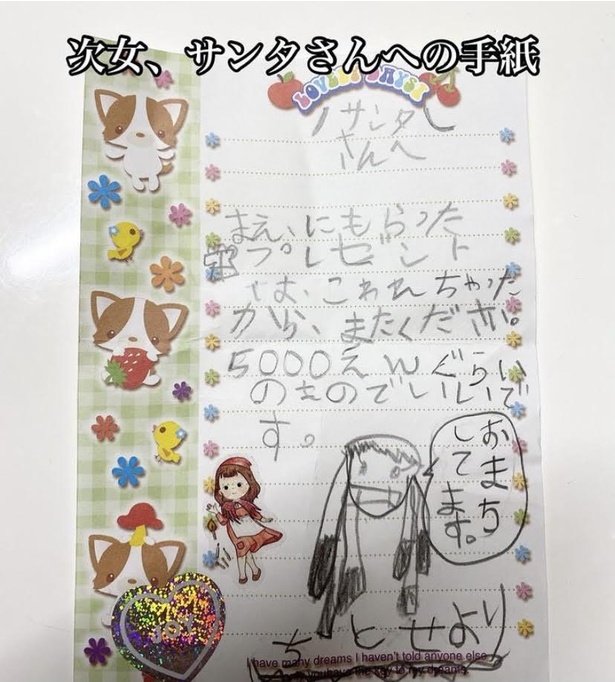 次女、サンタさんへの手紙
LOVELY DAYS!
サンタ
さんへ
まえ、にもらった
プレゼント
は、こわれちゃった
から、またください。
5000えんぐらい
のものでいいで
す。
おまち
してます。
JOY
ちとせより
I have many dreams I haven't told anyone else